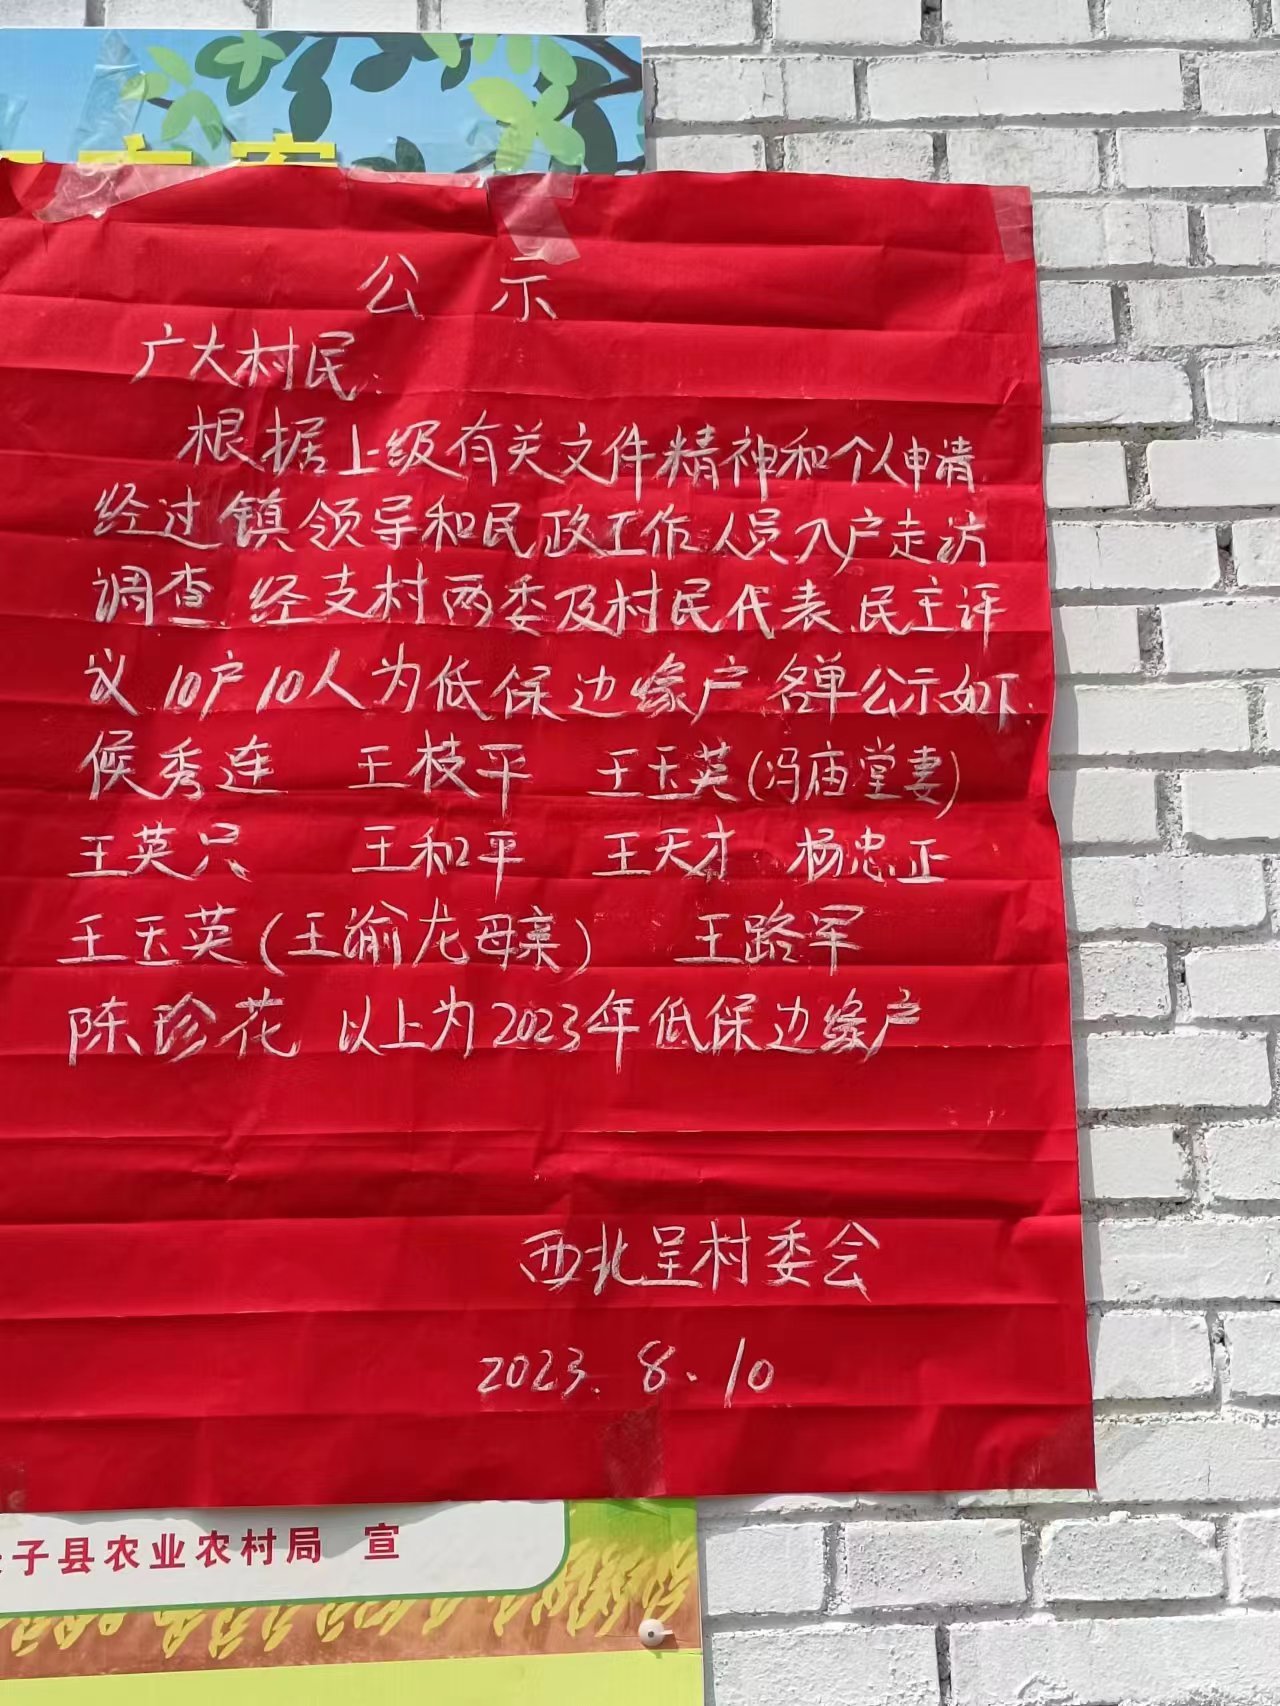 公示
广大村民:
根据上级有关文件精神和个人申请
经过镇领导和民政工作人员入户走访
调查.经支村两委及村民代表民主评
议10户10人为低保边缘户.名单公示如下.
候秀连 王枝平 王玉英(冯庙堂妻)
王英只 王和平 王天才 杨忠正
王玉英(王渝龙母亲) 王路军
陈珍花 以上为2023年低保边缘户
西北呈村委会
2023.8.10
子县农业农村局 宣